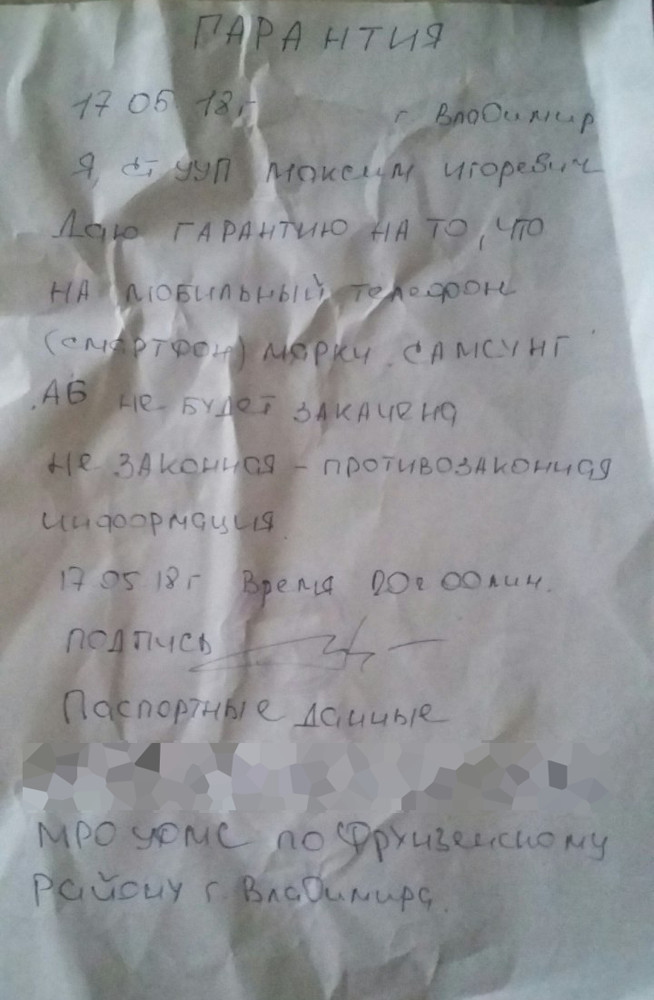 ГАРАНТИЯ
17 05 18г г Владимир
Я, ст УУП Максим Игоревич
Даю ГАРАНТИЮ НА ТО, ЧТО
НА МОБИЛЬНЫЙ телефон
(СМАРТФОН) марки САМСУНГ
А6 не БУДЕТ ЗАКАЧЕНА
Не ЗАКОННАЯ - ПРОТИВОЗАКОННАЯ
информация
17 05 18г Время 20ч 00мин.
ПОДПИСЬ
Паспортные данные
МРО УФМС по Фрунзенскому
району г. Владимира.